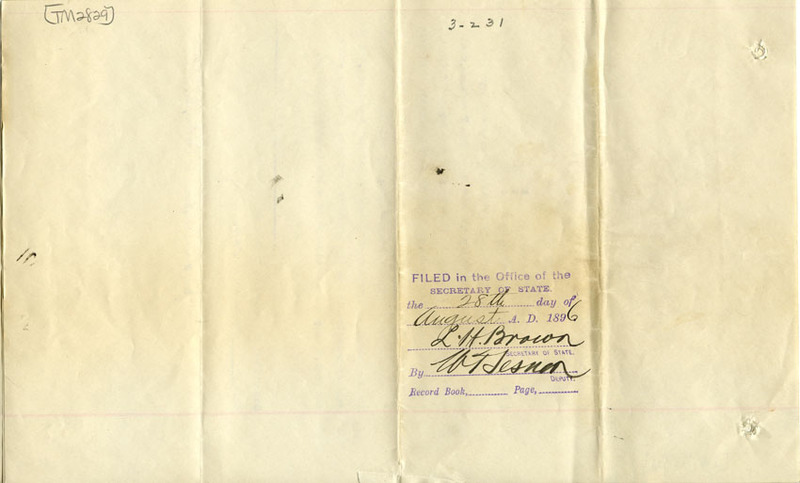 [TM2829]
3-231
FILED in the Office of the
SECRETARY OF STATE.
the 28th day of
August A. D. 1896
L. H. Brown
SECRETARY OF STATE.
By
DEPUTY.
Record Book, Page,